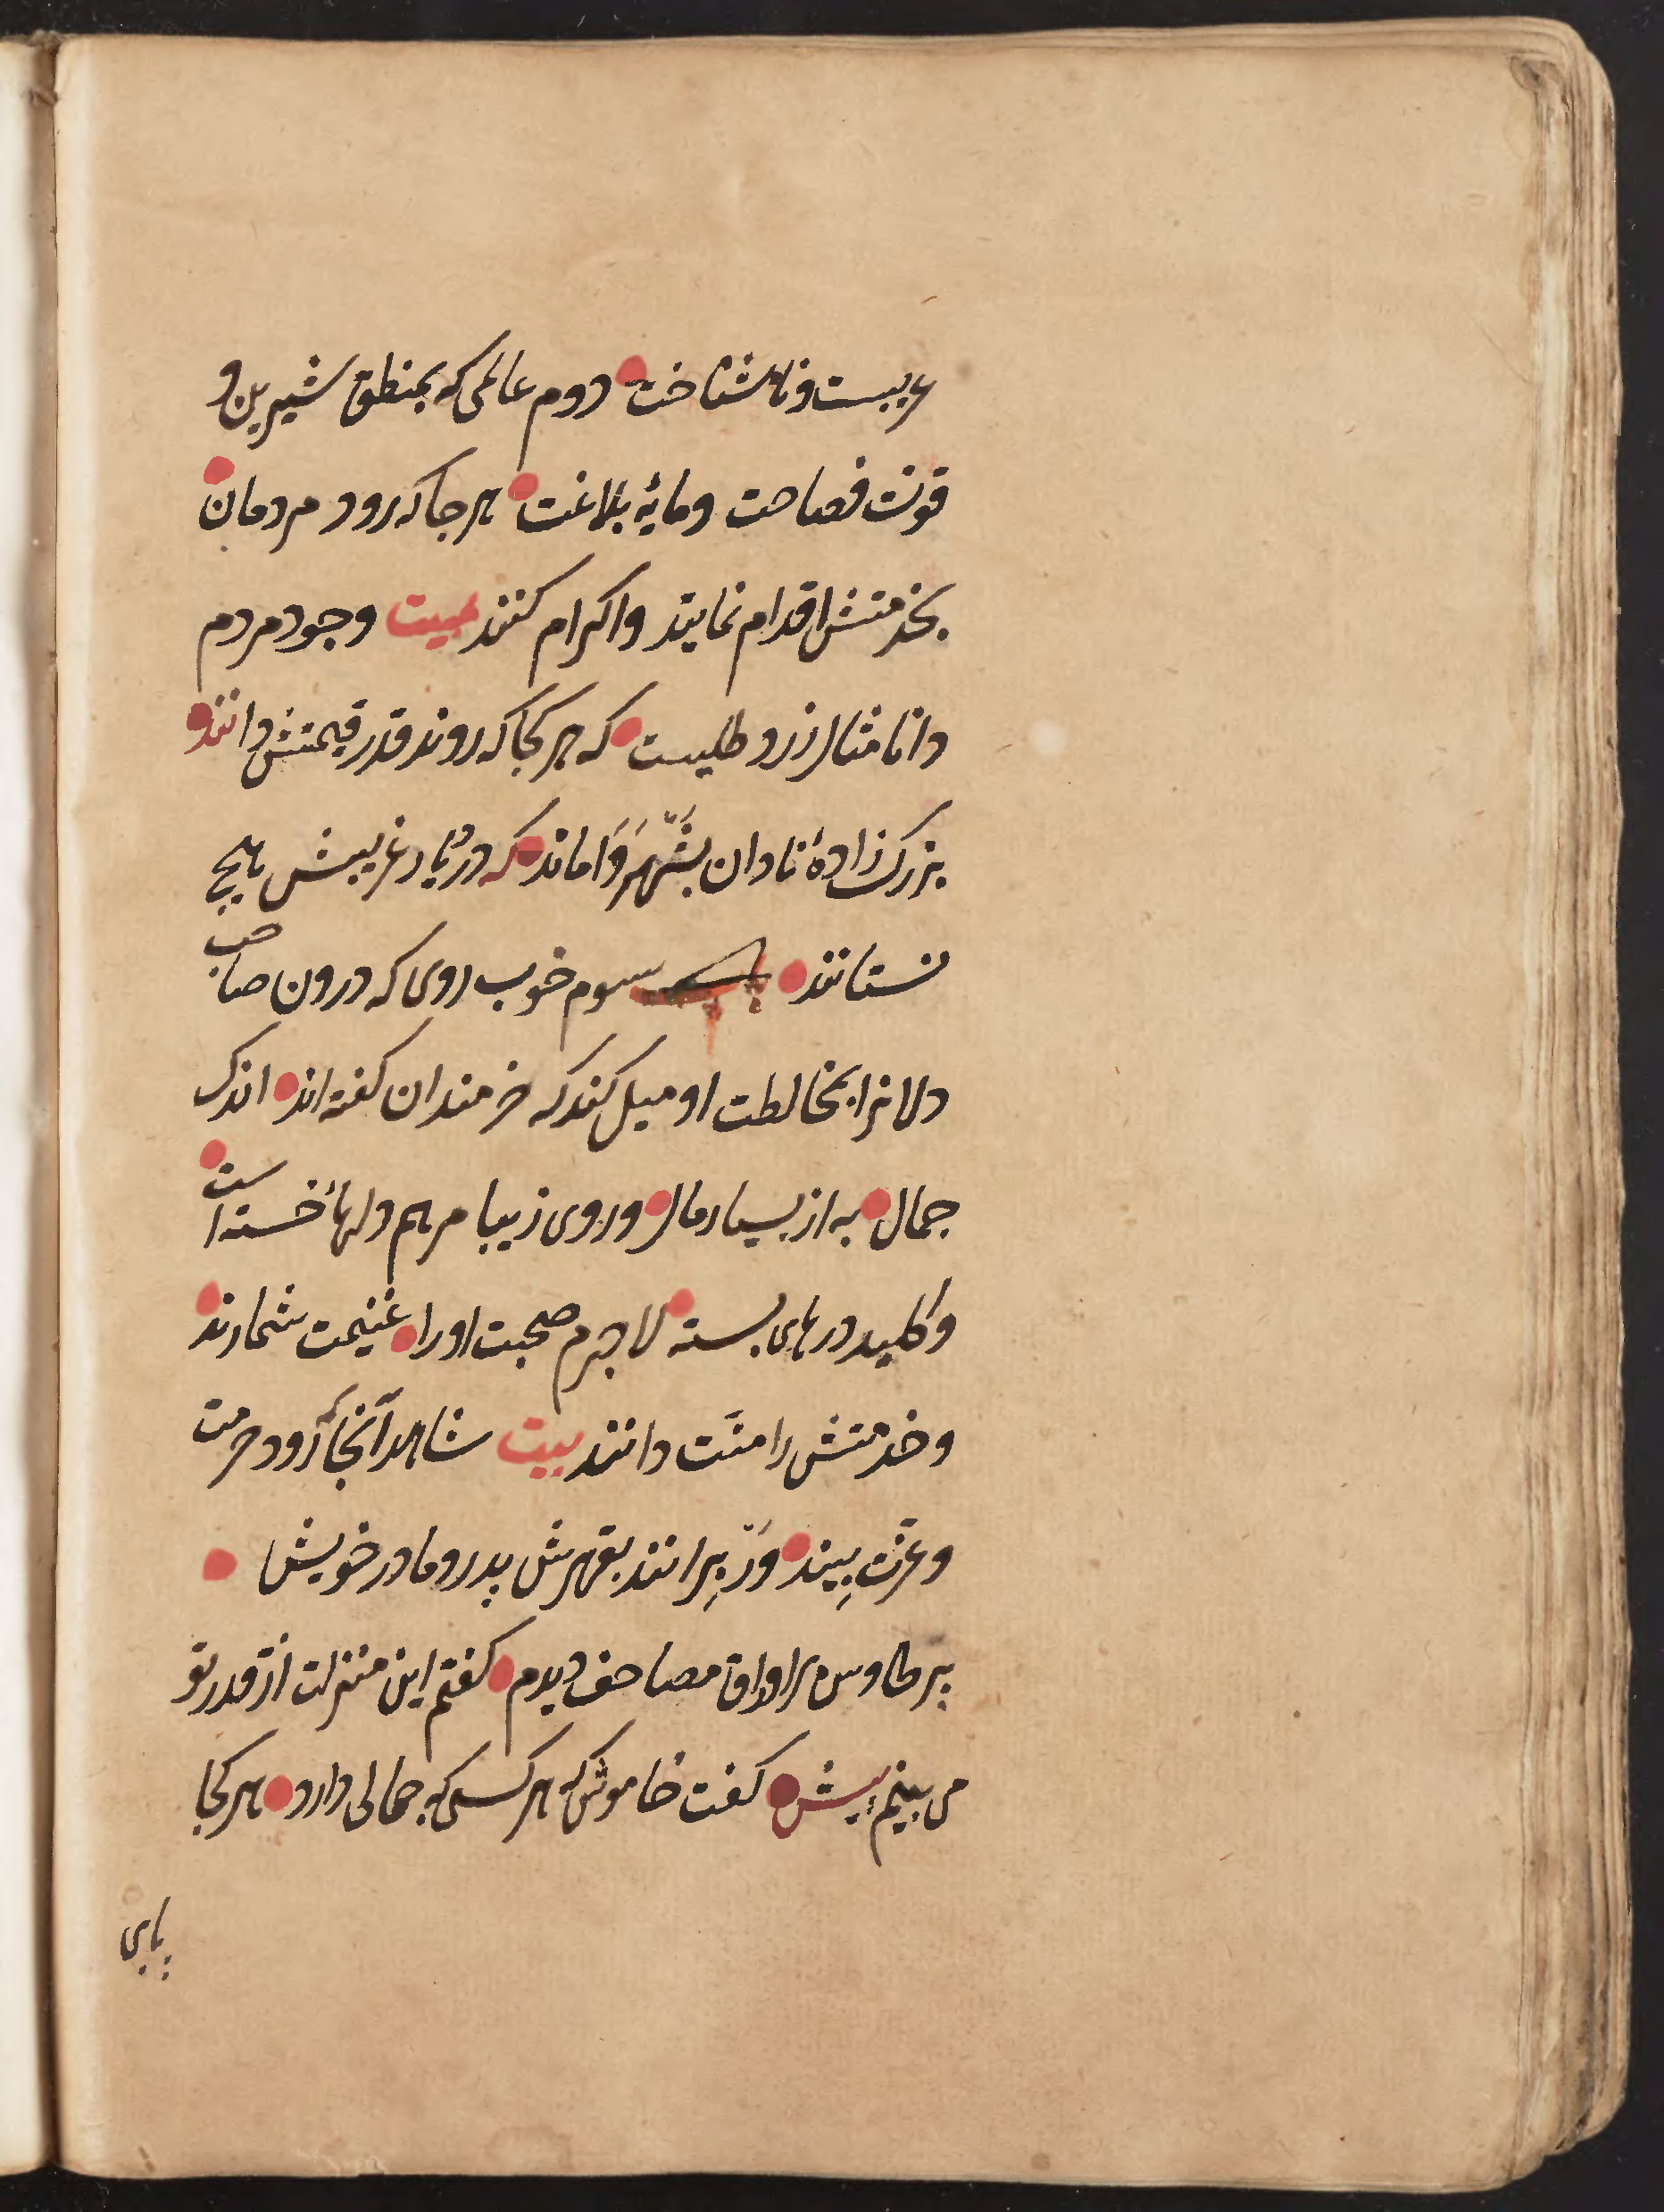 غریبست و ناشناخت دوم عالمی که بمنطق شیرین و
قوت فصاحت و مایهٔ بلاغت هر جا که رود مردمان
بخدمتش اقدام نمایند و اکرام کنند بیت وجود مردم
دانا مثال زر و طلیست که هر کجا که روند قدر قیمتش دانند
بزرک زادهٔ نادان بشهر واماند که در دیار غریبش بهیچ
نستانند سوم خوب روی که درون صاحب
دلانرا بمخالطت او میل کند که خرمندان کفته اند اندک
جمال به از بسیار مال و روی زیبا مرهم دلهاء خسته است
و کلید درهای بسته لاجرم صحبت او را غنیمت شمارند
و خدمتش را منّت دانند بیت شاهد آنجا که رود حرمت
و عزت بیند ور برانند بقهرش پدر و مادر خویش
پر طاوس بر اوراق مصاحف دیدم کفتم این منزلت از قدر تو
می بینم پیش کفت خاموش که هر کسی که جمالی دارد هر کجا
پای